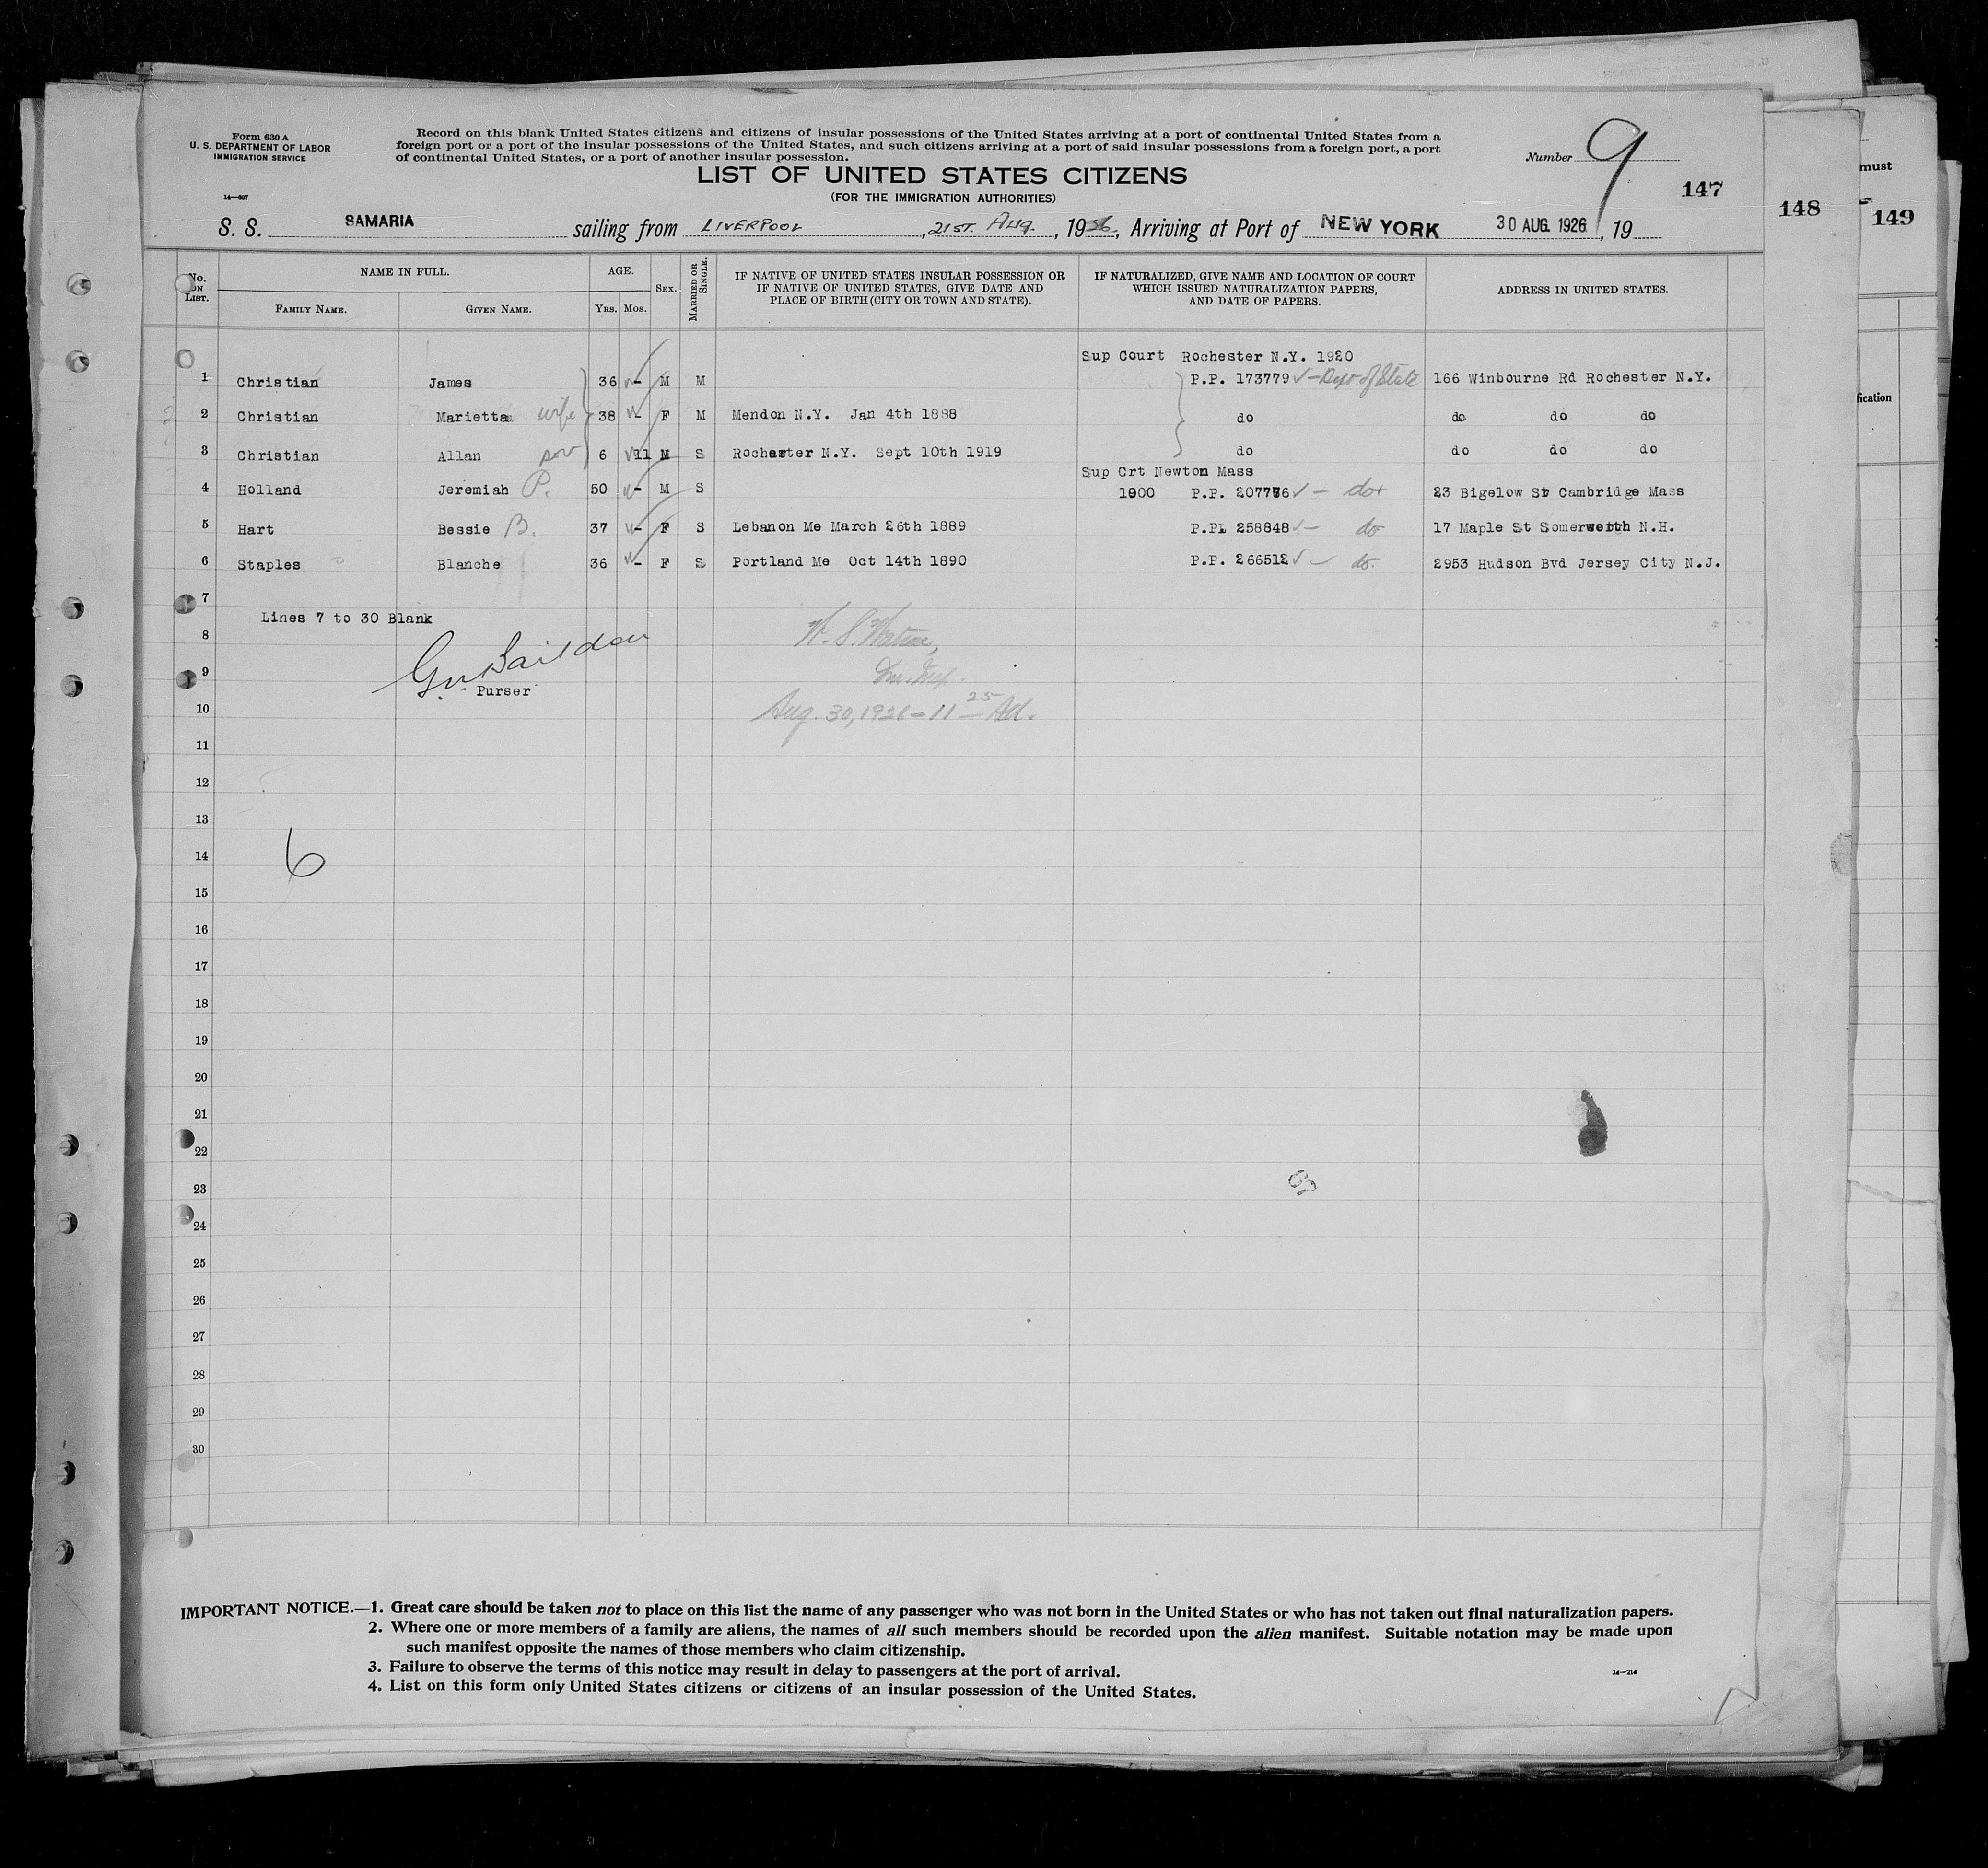 Form 630 A
U. S. DEPARTMENT OF LABOR
IMMIGRATION SERVICE
14—607
Record on this blank United States citizens and citizens of insular possessions of the United States arriving at a port of continental United States from a
foreign port or a port of the insular possessions of the United States, and such citizens arriving at a port of said insular possessions from a foreign port, a port
of continental United States, or a port of another insular possession.
Number 9
LIST OF UNITED STATES CITIZENS
(FOR THE IMMIGRATION AUTHORITIES)
147
148
149
must
S. S. SAMARIA sailing from LIVERPOOL, 21ST. Aug., 1926, Arriving at Port of NEW YORK 30 AUG. 1926, 19
No. ON LIST.
NAME IN FULL.
FAMILY NAME. GIVEN NAME.
AGE.
YRS. MOS.
SEX.
MARRIED OR SINGLE.
IF NATIVE OF UNITED STATES INSULAR POSSESSION OR
IF NATIVE OF UNITED STATES, GIVE DATE AND
PLACE OF BIRTH (CITY OR TOWN AND STATE).
IF NATURALIZED, GIVE NAME AND LOCATION OF COURT
WHICH ISSUED NATURALIZATION PAPERS,
AND DATE OF PAPERS.
ADDRESS IN UNITED STATES.
fication
Sup Court Rochester N.Y. 1920
1 Christian James 36 - M M P.P. 173779 ✓ - Dept of State 166 Winbourne Rd Rochester N.Y.
2 Christian Marietta wife 38 - F M Mendon N.Y. Jan 4th 1888 do do do do
3 Christian Allan son 6 11 M S Rochester N.Y. Sept 10th 1919 do do do do
Sup Crt Newton Mass
4 Holland Jeremiah P. 50 - M S 1900 P.P. 207776 ✓ - do 23 Bigelow St Cambridge Mass
5 Hart Bessie B. 37 - F S Lebanon Me March 26th 1889 P.P. 258848 ✓ - do 17 Maple St Somersworth N.H.
6 Staples Blanche 36 - F S Portland Me Oct 14th 1890 P.P. 266512 ✓ - do. 2953 Hudson Bvd Jersey City N.J.
7
Lines 7 to 30 Blank
8
9
Purser
10
Aug. 30, 1926 - 11 25
11
12
13
14
6
15
16
17
18
19
20
21
22
23
24
25
26
27
28
29
30
IMPORTANT NOTICE.—1. Great care should be taken not to place on this list the name of any passenger who was not born in the United States or who has not taken out final naturalization papers.
2. Where one or more members of a family are aliens, the names of all such members should be recorded upon the alien manifest. Suitable notation may be made upon
such manifest opposite the names of those members who claim citizenship.
3. Failure to observe the terms of this notice may result in delay to passengers at the port of arrival.
4. List on this form only United States citizens or citizens of an insular possession of the United States.
14—214